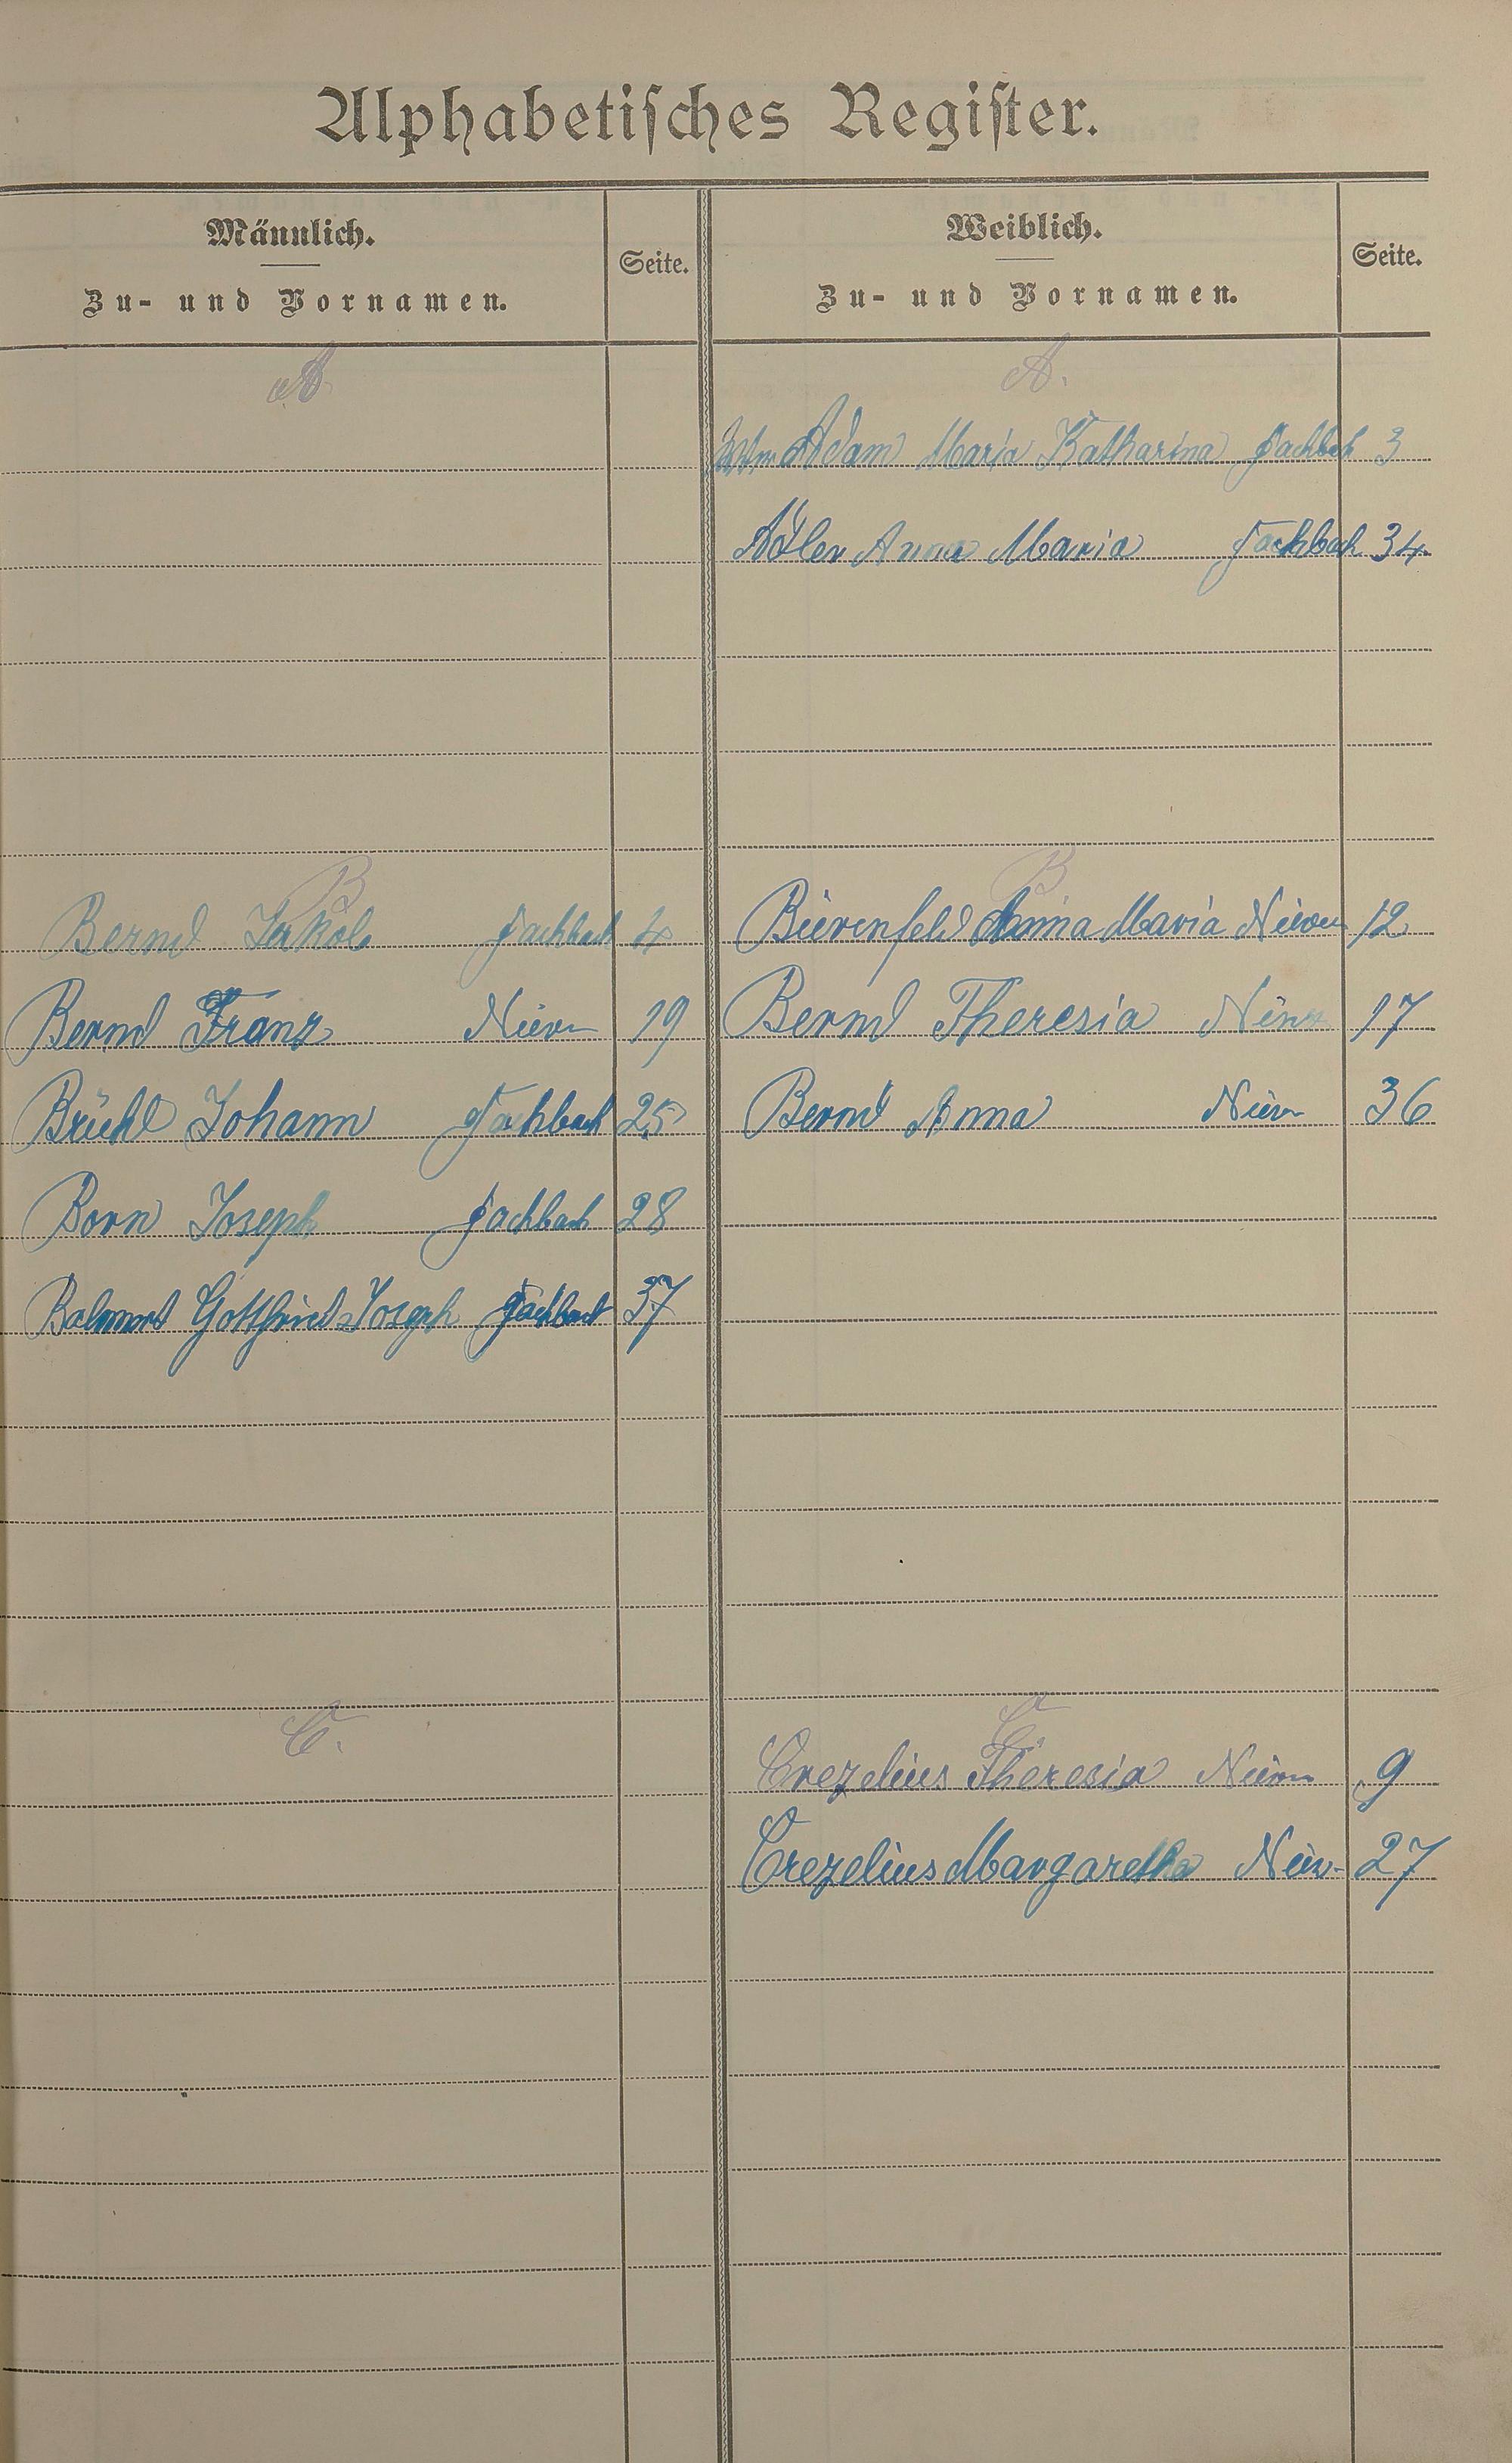 Alphabetisches Register.
Männlich. Seite. Weiblich. Seite.
Zu- und Vornamen. Zu- und Vornamen.
A. A.
Adam Maria Katharina Fachbach 3
Adler Anna Maria Fachbach 34
B B
Bernd Jakob Fachbach 4 Bierenfeld Anna Maria Nievern 12
Bernd Franz Nievern 19 Bernd Theresia Nievern 17
Brühl Johann Fachbach 25 Bernd Anna Nievern 36
Born Joseph Fachbach 28
Gottfried Joseph Fachbach 37
C. C.
Crezelius Theresia Nievern 9
Crezelius Margaretha Niev. 27